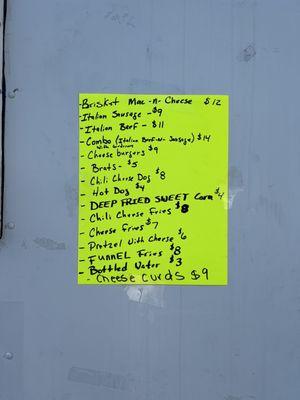 - Brisket Mac -n- Cheese $12
- Italian Sausage - $9
- Italian Beef - $11
- Combo (Italian Beef -n- Sausage) $14
- Cheese burgers $9
- Brats - $5
- Chili Cheese Dog $8
- Hot Dog $4
- DEEP FRIED SWEET Corn $4
- Chili Cheese Fries $8
- Cheese Fries $7
- Pretzel With Cheese $6
- FUNNEL Fries $8
- Bottled Water $3
- Cheese Curds $9